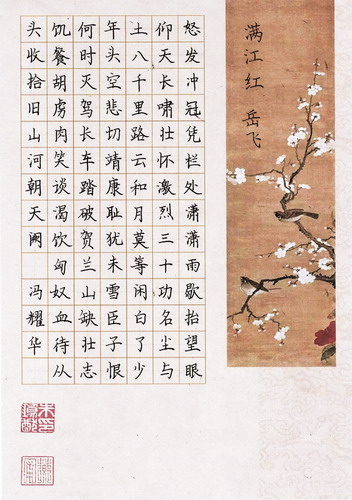 满江红 岳飞
怒发冲冠凭栏处潇潇雨歇抬望眼
仰天长啸壮怀激烈三十功名尘与
土八千里路云和月莫等闲白了少
年头空悲切靖康耻犹未雪臣子恨
何时灭驾长车踏破贺兰山缺壮志
饥餐胡虏肉笑谈渴饮匈奴血待从
头收拾旧山河朝天阙 冯耀华